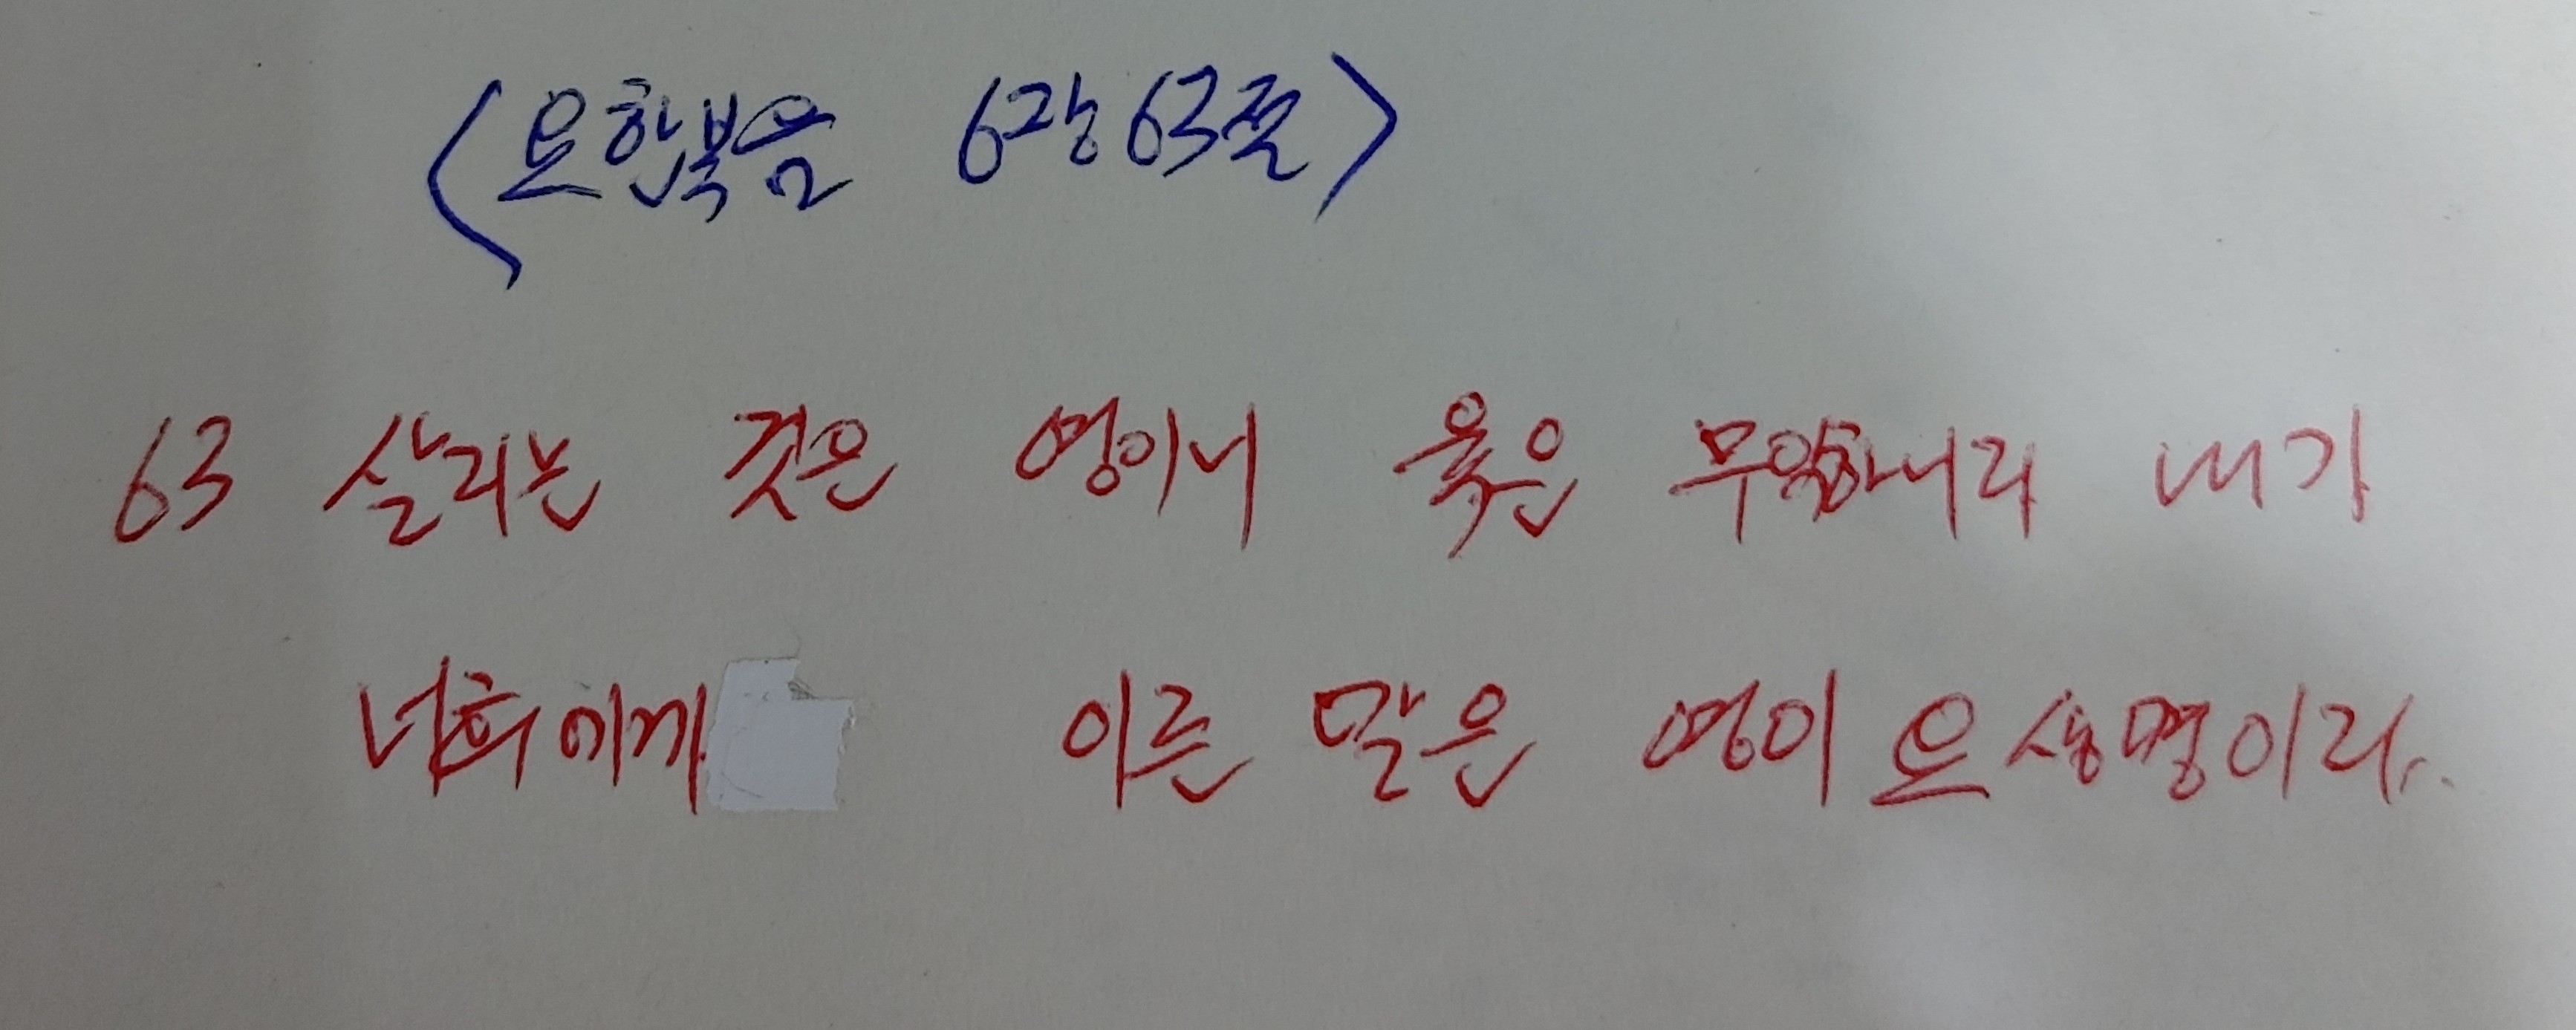 <요한복음 6장 63절>
63 살리는 것은 영이니 육은 무익하니라 내가
너희에게 이른 말은 영이요 생명이라.